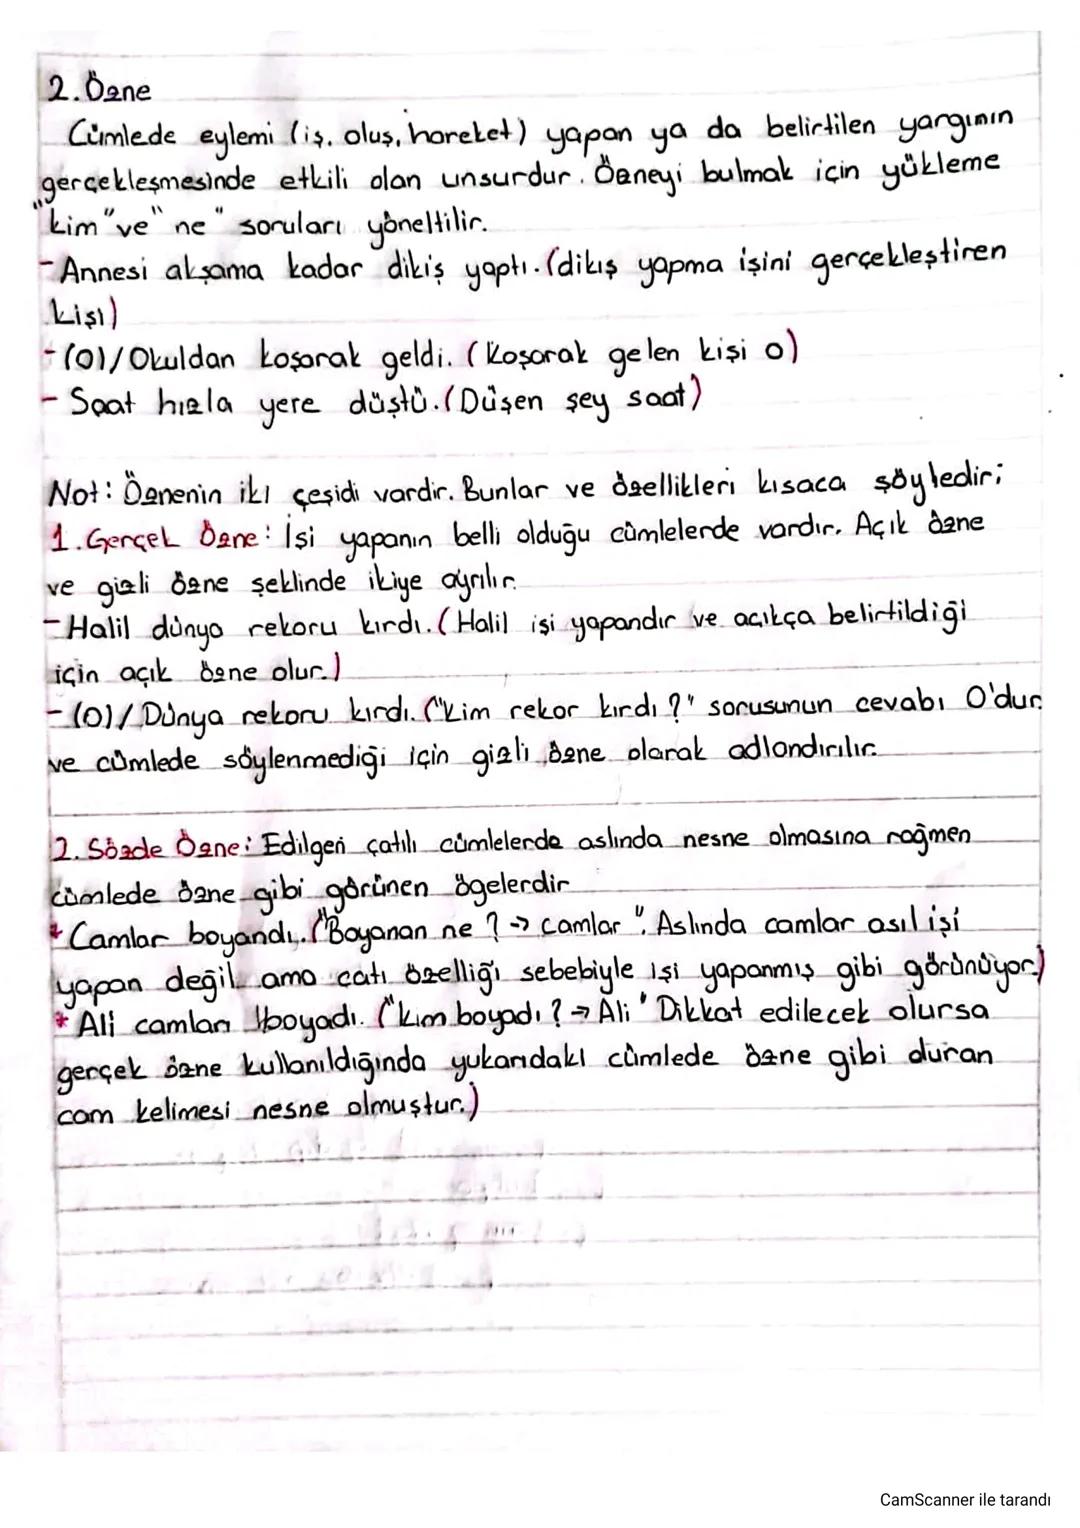 2. Özne
Cümlede eylemi (iş, oluş, hareket) yapan ya da belirtilen yargının
gerçekleşmesinde etkili olan unsurdur. Özneyi bulmak için yükleme
"kim" ve "ne" soruları yöneltilir.
- Annesi akşama kadar dikiş yaptı. (dikiş yapma işini gerçekleştiren
kişi)
- (O)/Okuldan koşarak geldi. (Koşarak gelen kişi o)
- Saat hızla yere düştü. (Düşen şey saat)
Not: Öznenin iki çeşidi vardır. Bunlar ve özellikleri kısaca şöyledir;
1. Gerçek Özne: İşi yapanın belli olduğu cümlelerde vardır. Açık özne
ve gizli özne şeklinde ikiye ayrılır.
- Halil dünya rekoru kırdı. (Halil işi yapandır ve açıkça belirtildiği
için açık özne olur.)
- (O)/Dünya rekoru kırdı. ("Kim rekor kırdı?" sorusunun cevabı O'dur.
ve cümlede söylenmediği için gizli özne olarak adlandırılır.
2. Sözde Özne: Edilgen çatılı cümlelerde aslında nesne olmasına rağmen
cümlede özne gibi görünen ögelerdir
* Camlar boyandı. ("Boyanan ne? → camlar". Aslında camlar asıl işi
yapan değil ama çatı özelliği sebebiyle işi yapanmış gibi görünüyor.)
* Ali camları boyadı. ("kim boyadı? → Ali' Dikkat edilecek olursa
gerçek özne kullanıldığında yukarıdaki cümlede özne gibi duran
cam kelimesi nesne olmuştur.)
CamScanner ile tarandı